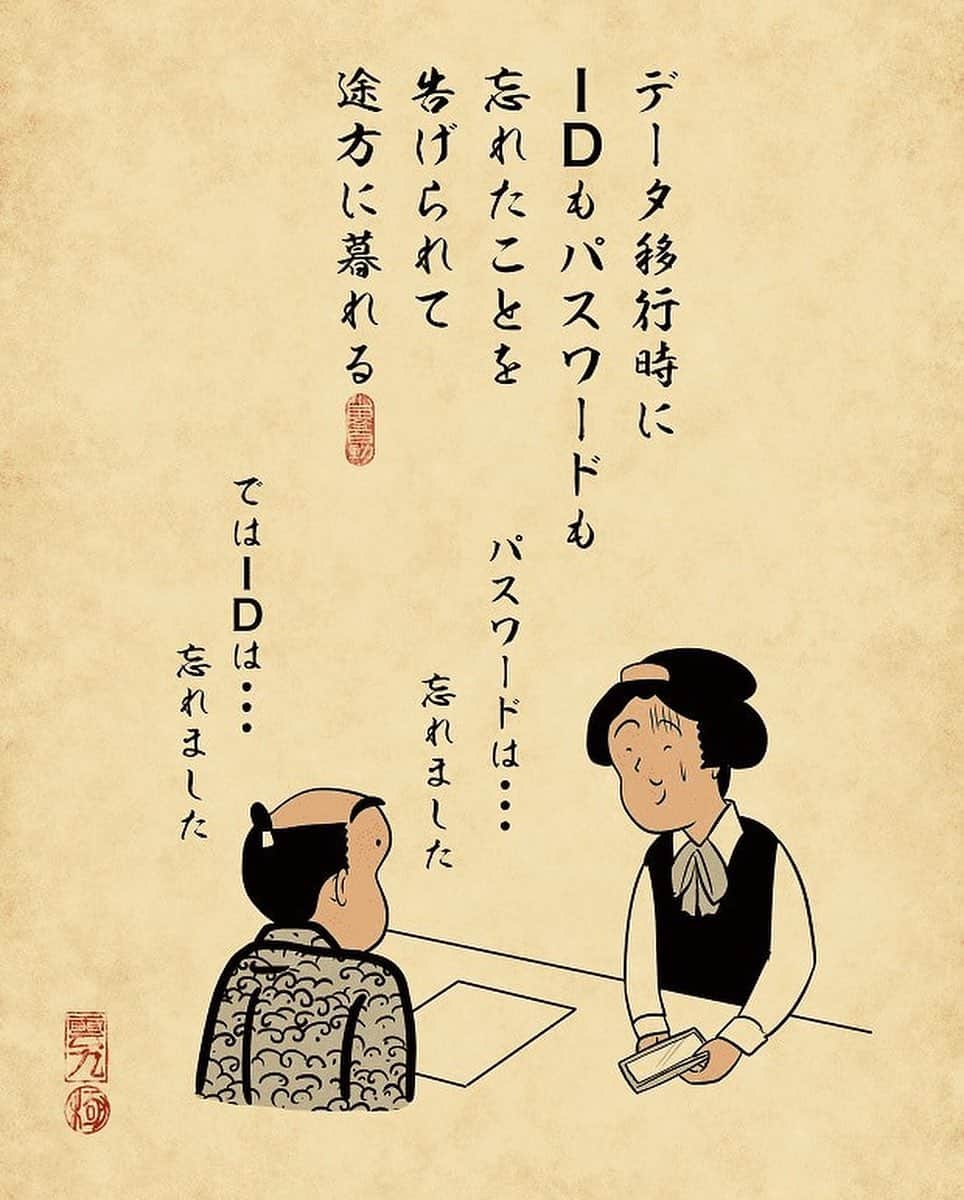 データ移行時に
IDもパスワードも
忘れたことを
告げられて
途方に暮れる
パスワードは・・・
忘れました
ではIDは・・・
忘れました